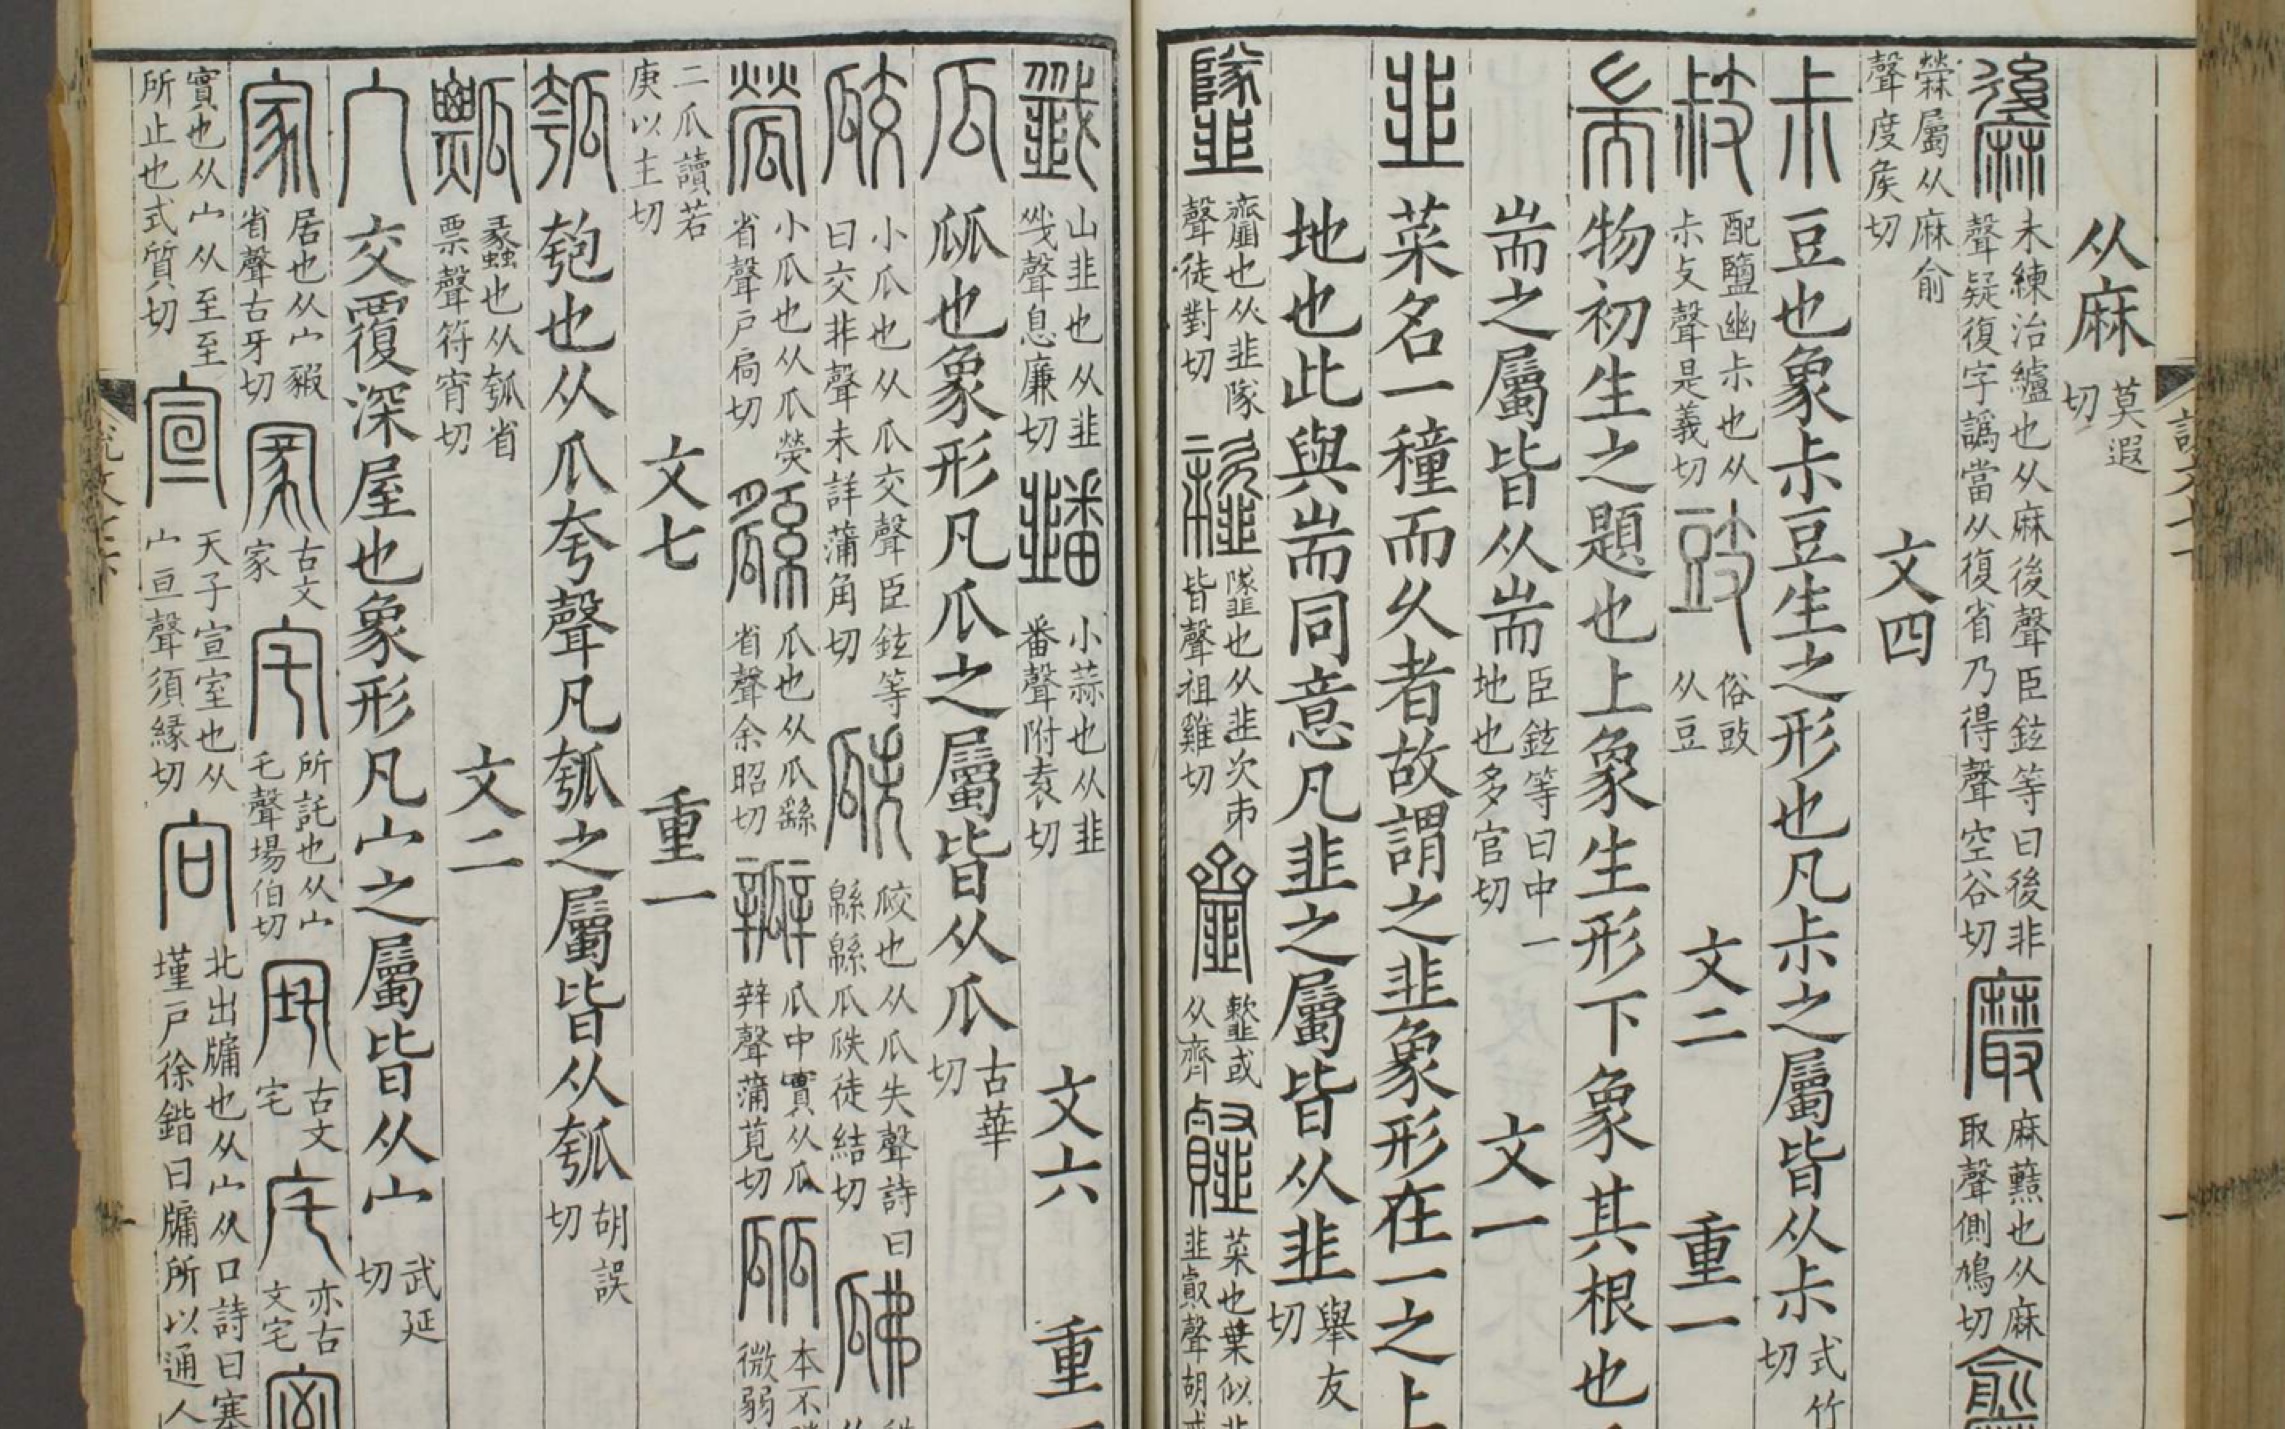 从麻莫遐切
未練治纑也从麻後聲臣鉉等曰後非聲疑復字譌當从復省乃得聲空谷切
麻藍也从麻取聲側鳩切
䋛屬从麻俞聲度矦切
文四
尗豆也象尗豆生之形也凡尗之屬皆从尗式竹切
配鹽幽尗也从尗攴聲是義切
俗敊从豆
文二
重一
耑物初生之題也上象生形下象其根也
耑之屬皆从耑臣鉉等曰中一地也多官切
文一
韭菜名一穜而乆者故謂之韭象形在一之上
地也此與耑同意凡韭之屬皆从韭舉友切
韲也从韭隊聲徒對切
䪤也从韭次𠂔皆聲祖雞切
或从齊
菜也葉似韭韭㕡聲胡
山韭也从韭㦰聲息廉切
小蒜也从韭番聲附袁切
文六
重
瓜㼌也象形凡瓜之屬皆从瓜古華切
小瓜也从瓜交聲臣鉉等曰交非聲未詳蒲角切
㼎也从瓜失聲詩曰緜緜瓜瓞徒結切
小瓜也从瓜熒省聲戶扃切
瓜也从瓜繇省聲余昭切
瓜中實从瓜辡聲蒲莧切
本不微弱
二瓜讀若庚以主切
文七
重一
瓠匏也从瓜夸聲凡瓠之屬皆从瓠胡誤切
蠡也从瓠省票聲符宵切
文二
宀交覆深屋也象形凡宀之屬皆从宀武延切
家居也从宀豭省聲古牙切
古文家
宅所託也从宀乇聲場伯切
古文宅
亦古文宅
實也从宀从至至所止也式質切
宣天子宣室也从宀亘聲須緣切
向北出牖也从宀从口詩曰塞墐戸徐鍇曰牖所以通人